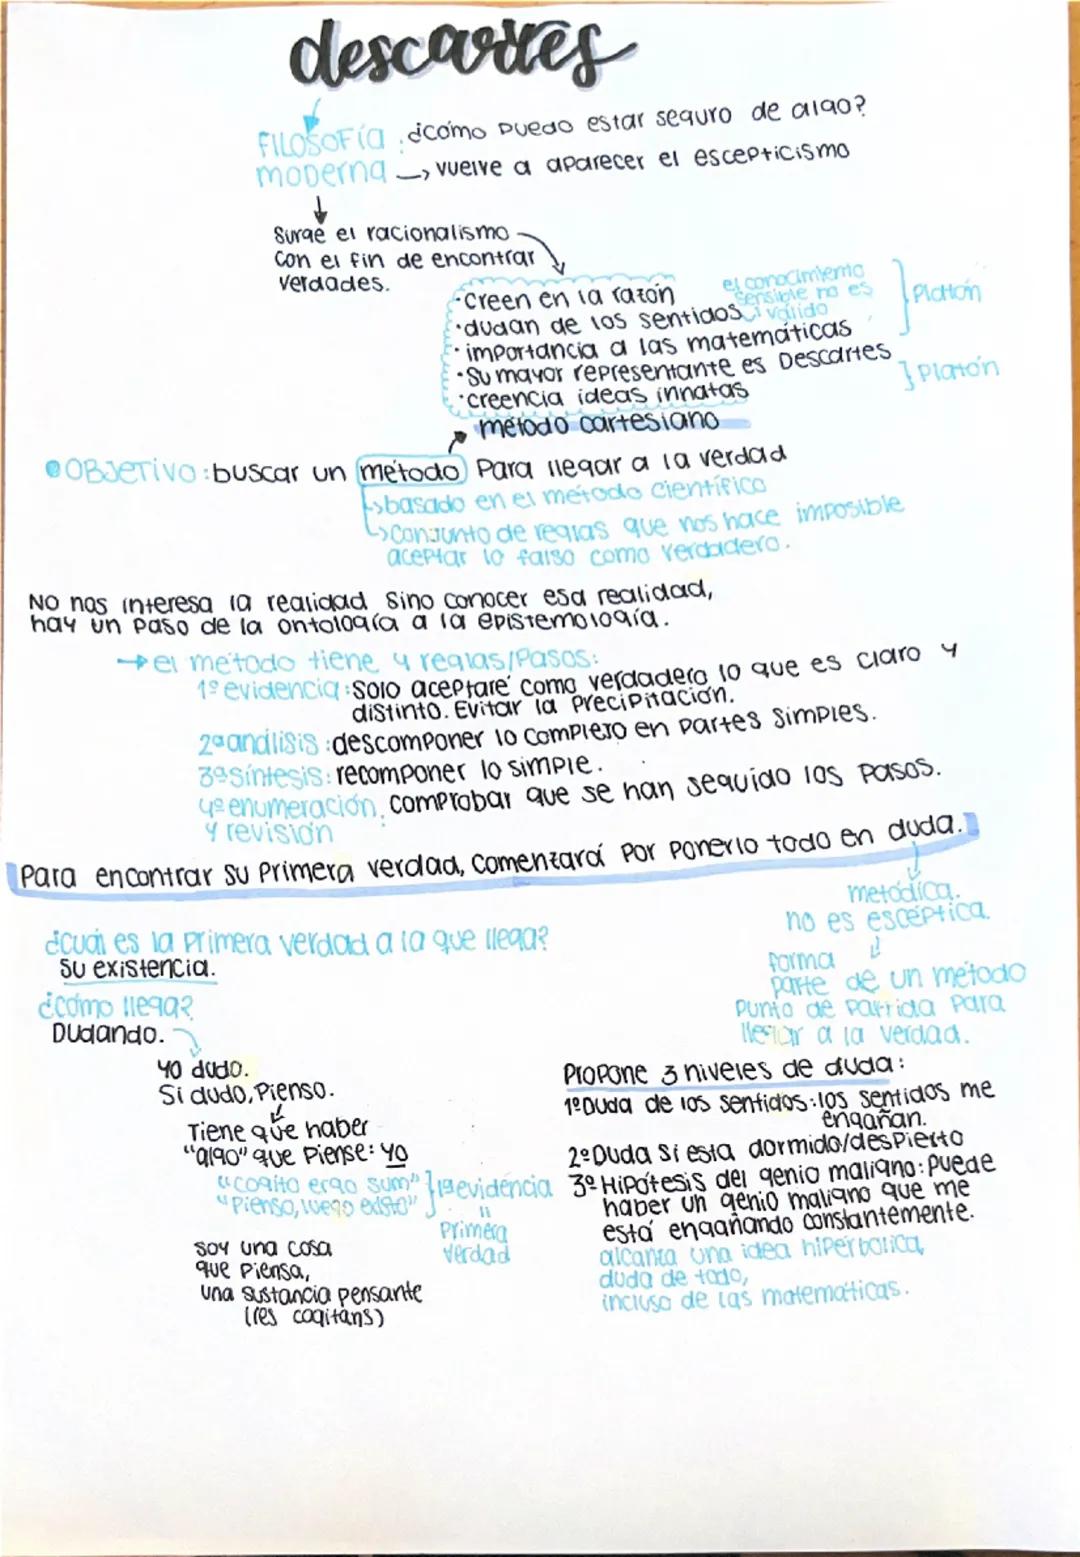 descartes
FILOSOFÍA : ¿cómo puedo estar seguro de algo?
moderna → vuelve a aparecer el escepticismo
Surge el racionalismo
con el fin de encontrar
verdades.
·creen en la razón
el conocimiento
sensible no es
válido
·dudan de los sentidos
·importancia a las matemáticas
Platón
·Su mayor representante es Descartes
·creencia ideas innatas
Platón
método cartesiano
OBJETIVO: buscar un método para llegar a la verdad
↳basado en el método científico
↳conjunto de reglas que nos hace imposible
aceptar lo falso como verdadero.
No nos interesa la realidad sino conocer esa realidad,
hay un paso de la ontología a la epistemología.
→ el método tiene 4 reglas/pasos:
1º evidencia: solo aceptaré como verdadero lo que es claro y
distinto. Evitar la precipitación.
2º análisis: descomponer lo complejo en partes simples.
3º síntesis: recomponer lo simple.
4º enumeración. comprobar que se han seguido los pasos.
y revisión
Para encontrar su primera verdad, comenzará por ponerlo todo en duda.
metódica.
no es escéptica.
forma
parte de un método
punto de partida para
llegar a la verdad.
¿cuál es la primera verdad a la que llega?
Su existencia.
¿cómo llega?
Dudando.
Yo dudo.
Si dudo, pienso.
Tiene que haber
"algo" que piense: yo
"cogito ergo sum"
"pienso, luego existo"
1ª evidencia
=
Primera
verdad
soy una cosa
que piensa,
una sustancia pensante
(res cogitans)
Propone 3 niveles de duda:
1º Duda de los sentidos: los sentidos me
engañan.
2º Duda si esta dormido/despierto
3º Hipótesis del genio maligno: puede
haber un genio maligno que me
está engañando constantemente.
alcanza una idea hiperbolica,
duda de todo,
incluso de las matemáticas.